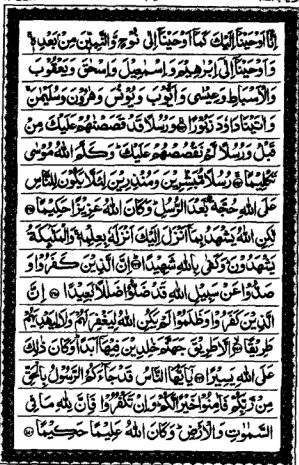 اِنَّاۤ اَوْحَیْنَاۤ اِلَیْكَ كَمَاۤ اَوْحَیْنَاۤ اِلٰی نُوْحٍ وَّالنَّبِیّٖنَ مِنْۢ بَعْدِهٖ
وَاَوْحَیْنَاۤ اِلٰۤی اِبْرٰهِیْمَ وَاِسْمٰعِیْلَ وَاِسْحٰقَ وَیَعْقُوْبَ
وَالْاَسْبَاطِ وَعِیْسٰی وَاَیُّوْبَ وَیُوْنُسَ وَهٰرُوْنَ وَسُلَیْمٰنَ
وَاٰتَیْنَا دَاوٗدَ زَبُوْرًا وَرُسُلًا قَدْ قَصَصْنٰهُمْ عَلَیْكَ مِنْ
قَبْلُ وَرُسُلًا لَّمْ نَقْصُصْهُمْ عَلَیْكَ وَكَلَّمَ اللّٰهُ مُوْسٰی
تَكْلِیْمًا رُسُلًا مُّبَشِّرِیْنَ وَمُنْذِرِیْنَ لِئَلَّا یَكُوْنَ لِلنَّاسِ
عَلَی اللّٰهِ حُجَّةٌۢ بَعْدَ الرُّسُلِ وَكَانَ اللّٰهُ عَزِیْزًا حَكِیْمًا
لٰكِنِ اللّٰهُ یَشْهَدُ بِمَاۤ اَنْزَلَ اِلَیْكَ اَنْزَلَهٗ بِعِلْمِهٖ وَالْمَلٰٓئِكَةُ
یَشْهَدُوْنَ وَكَفٰی بِاللّٰهِ شَهِیْدًا اِنَّ الَّذِیْنَ كَفَرُوْا وَ
صَدُّوْا عَنْ سَبِیْلِ اللّٰهِ قَدْ ضَلُّوْا ضَلٰلًۢا بَعِیْدًا اِنَّ
الَّذِیْنَ كَفَرُوْا وَظَلَمُوْا لَمْ یَكُنِ اللّٰهُ لِیَغْفِرَ لَهُمْ وَلَا لِیَهْدِیَهُمْ
طَرِیْقًا اِلَّا طَرِیْقَ جَهَنَّمَ خٰلِدِیْنَ فِیْهَاۤ اَبَدًا وَكَانَ ذٰلِكَ
عَلَی اللّٰهِ یَسِیْرًا یٰۤاَیُّهَا النَّاسُ قَدْ جَآءَكُمُ الرَّسُوْلُ بِالْحَقِّ
مِنْ رَّبِّكُمْ فَاٰمِنُوْا خَیْرًا لَّكُمْ وَاِنْ تَكْفُرُوْا فَاِنَّ لِلّٰهِ مَا فِی
السَّمٰوٰتِ وَالْاَرْضِ وَكَانَ اللّٰهُ عَلِیْمًا حَكِیْمًا